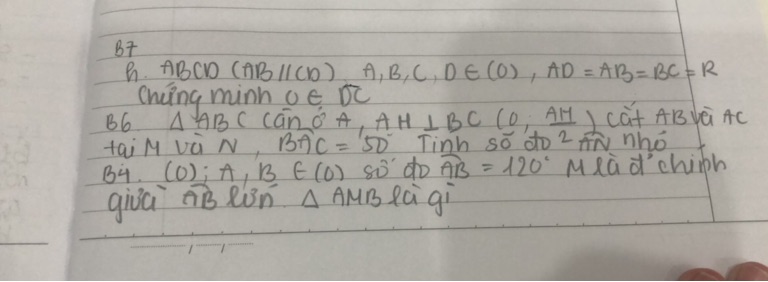 B7
h. ABCD (AB//CD), A, B, C, D ∈ (O), AD = AB = BC = R
Chứng minh O ∈ DC
B6 Δ ABC cân ở A, AH ⊥ BC (O, AH/2) cắt AB và AC
tại M và N, BAC = 50° Tính số đo AN nhỏ
B4. (O); A, B ∈ (O) số đo AB = 120° M là đ' chính
giữa AB lớn. Δ AMB là gì